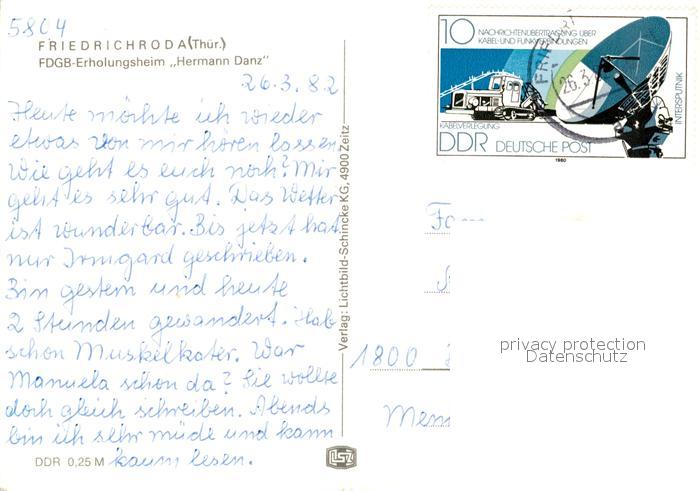 5804
FRIEDRICHRODA (Thür.)
FDGB-Erholungsheim „Hermann Danz"
26.3.82
Heute möchte ich wieder
etwas von mir hören lassen.
Wie geht es euch noch? Mir
geht es sehr gut. Das Wetter
ist wunderbar. Bis jetzt hat
nur Irmgard geschrieben.
Bin gestern und heute
2 Stunden gewandert. Hab
schon Muskelkater. War
Manuela schon da? Sie wollte
doch gleich schreiben. Abends
bin ich sehr müde und kann
kaum lesen.
DDR 0,25 M
Verlag: Lichtbild-Schincke KG, 4900 Zeitz
LSZ
10 NACHRICHTENÜBERTRAGUNG ÜBER
KABEL- UND FUNKVERBINDUNGEN
KABELVERLEGUNG
INTERSPUTNIK
DDR DEUTSCHE POST
1980
26.3
1800
privacy protection
Datenschutz